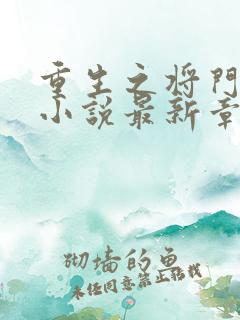 重生之将门
小说最新章
砌墙的鱼
未经同意禁止转载